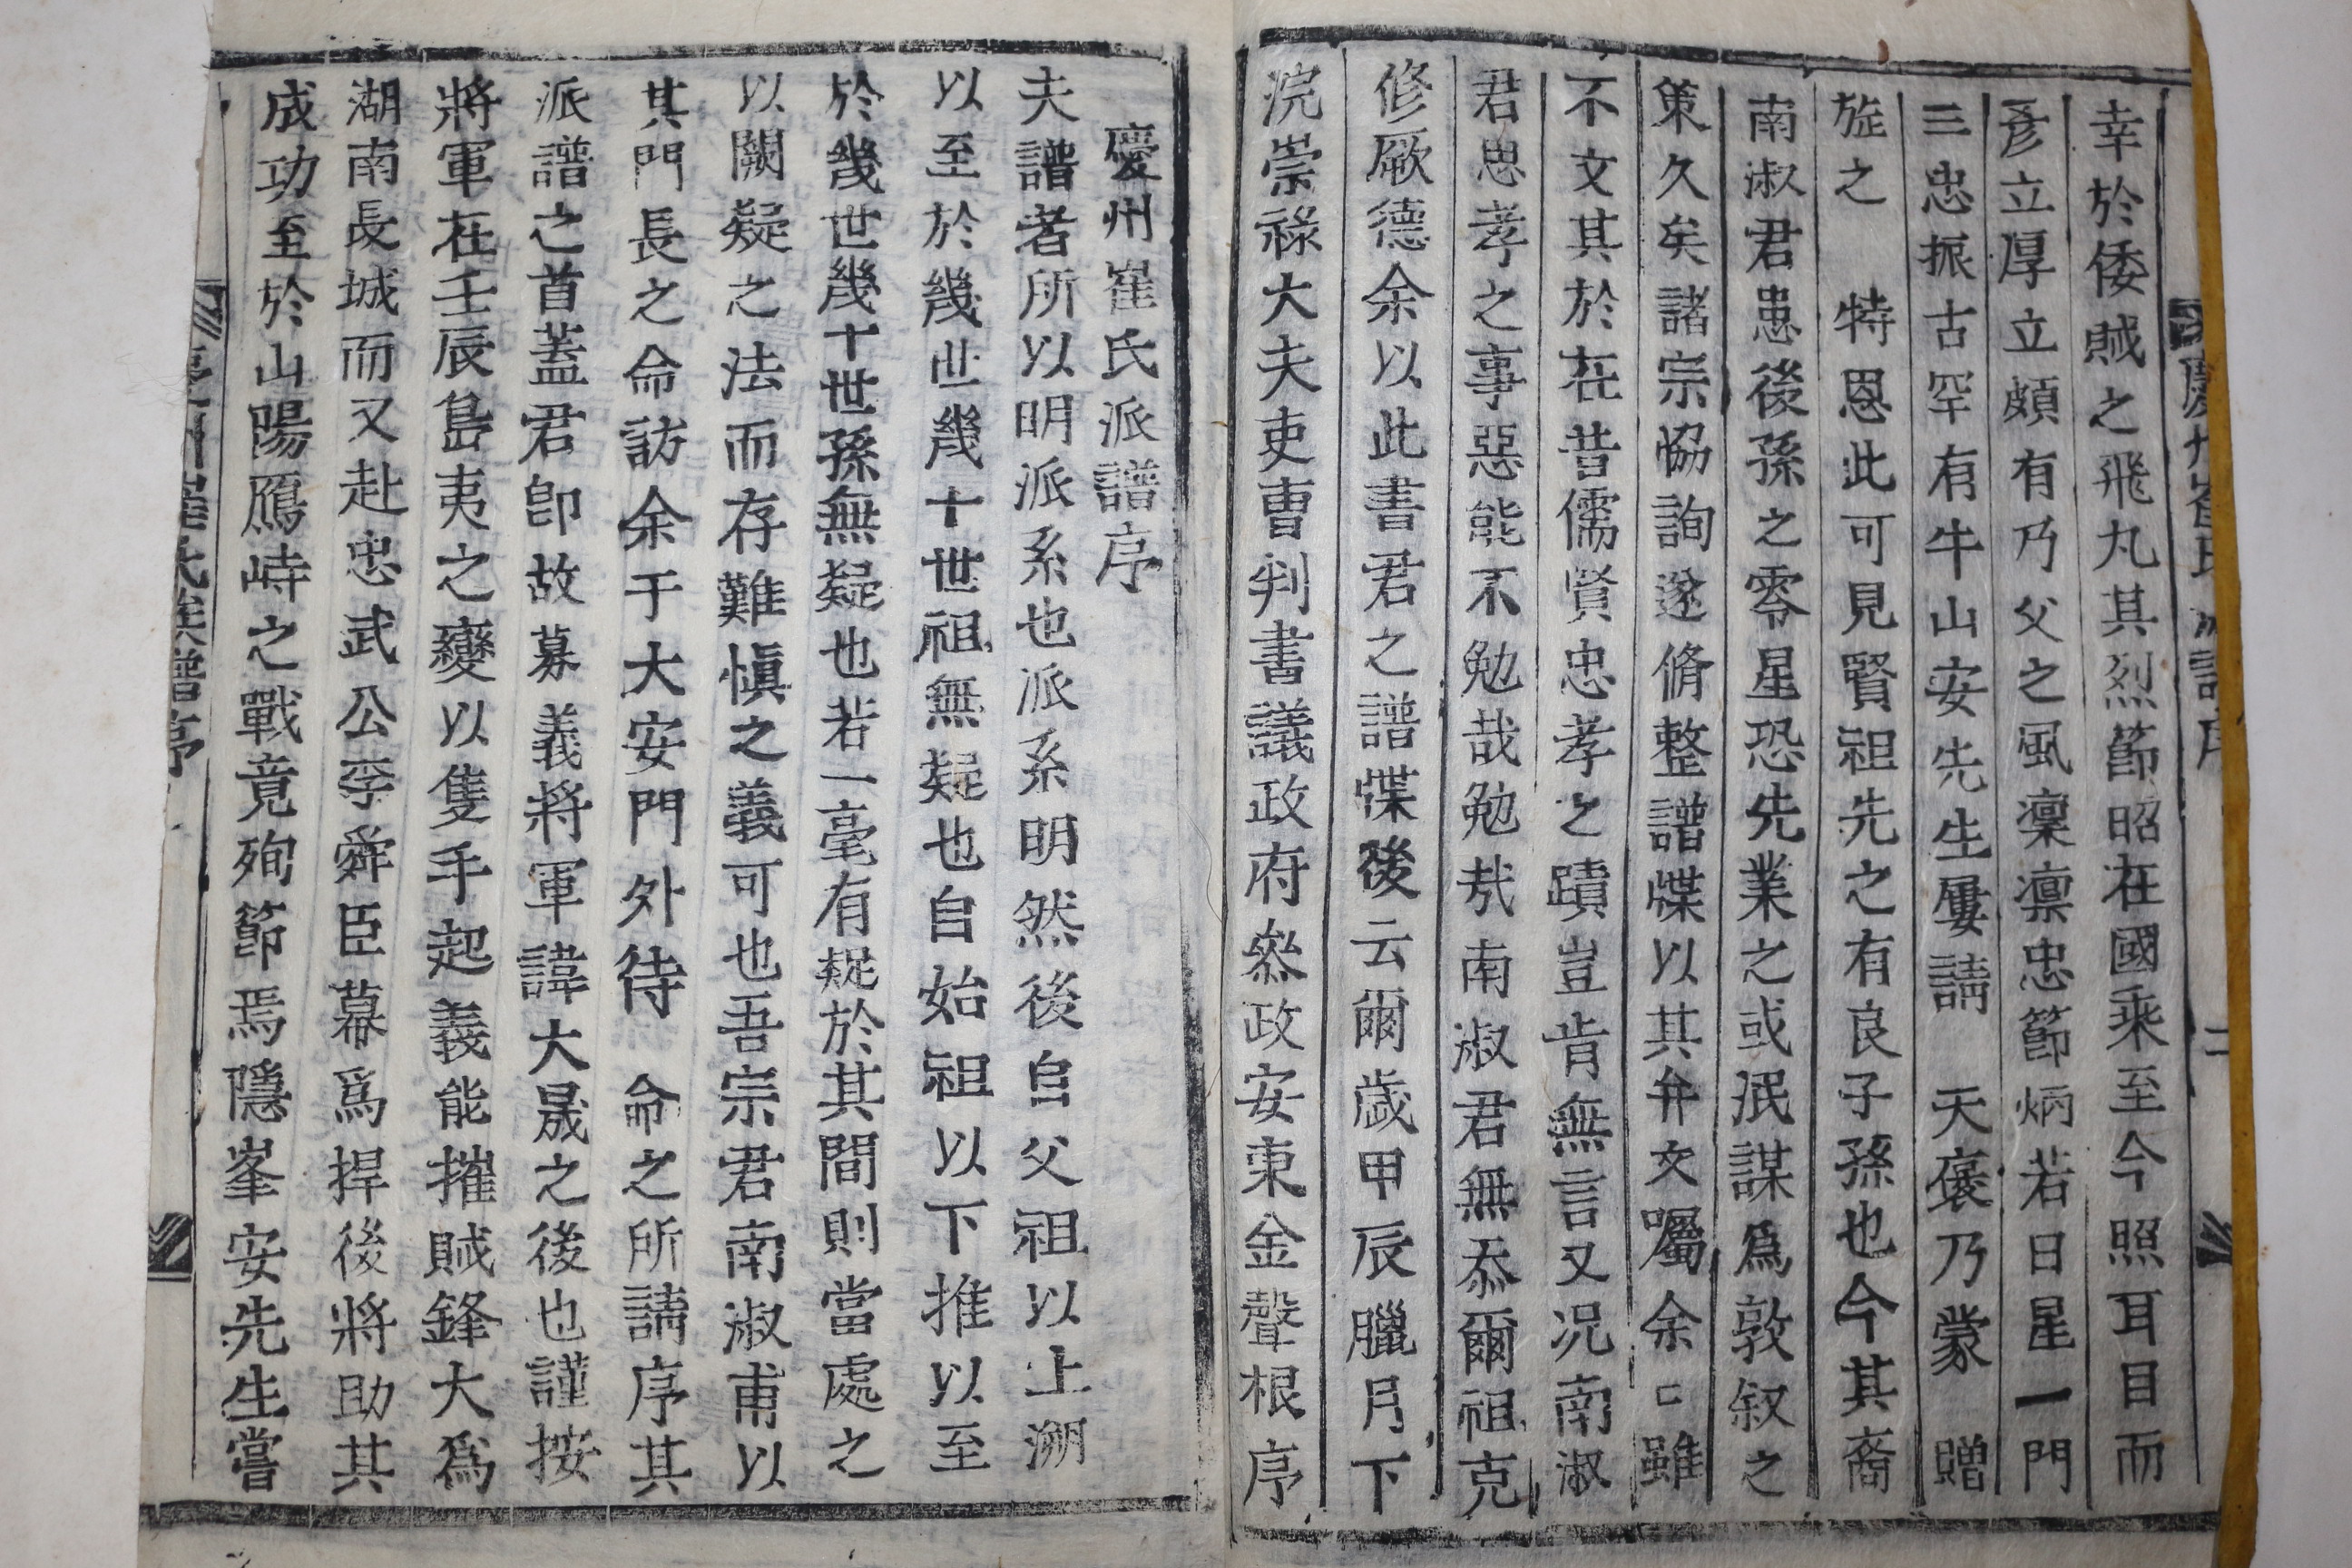 慶州崔氏派譜序
二
幸於倭賊之飛丸其烈節昭在國乘至今照耳目而
彥立厚立頗有乃父之風凜凜忠節炳若日星一門
三忠振古罕有牛山安先生屢請 天褒乃蒙 贈
旋之 特恩此可見賢祖先之有良子孫也今其裔
南淑君患後孫之零星恐先業之或泯謀爲敦叙之
策久矣諸宗恊詢遂脩整譜牒以其弁文囑余余雖
不文其於在昔儒賢忠孝之蹟豈肯無言又况南淑
君思孝之事惡能不勉哉勉哉南淑君無忝爾祖克
修厥德余以此書君之譜牒後云爾歲甲辰臘月下
浣崇祿大夫吏曹判書議政府叅政安東金聲根序
慶州崔氏派譜序
夫譜者所以明派系也派系明然後自父祖以上溯
以至於幾世幾十世祖無疑也自始祖以下推以至
於幾世幾十世孫無疑也若一毫有疑於其間則當處之
以闕疑之法而存難愼之義可也吾宗君南淑甫以
其門長之命訪余于大安門外待 命之所請序其
派譜之首蓋君卽故募義將軍諱大晟之後也謹按
將軍在壬辰島夷之變以隻手起義能摧賊鋒大爲
湖南長城而又赴忠武公李舜臣幕爲捍後將助其
成功至於山陽鴈峙之戰竟殉節焉隱峯安先生嘗
慶州崔氏族譜序